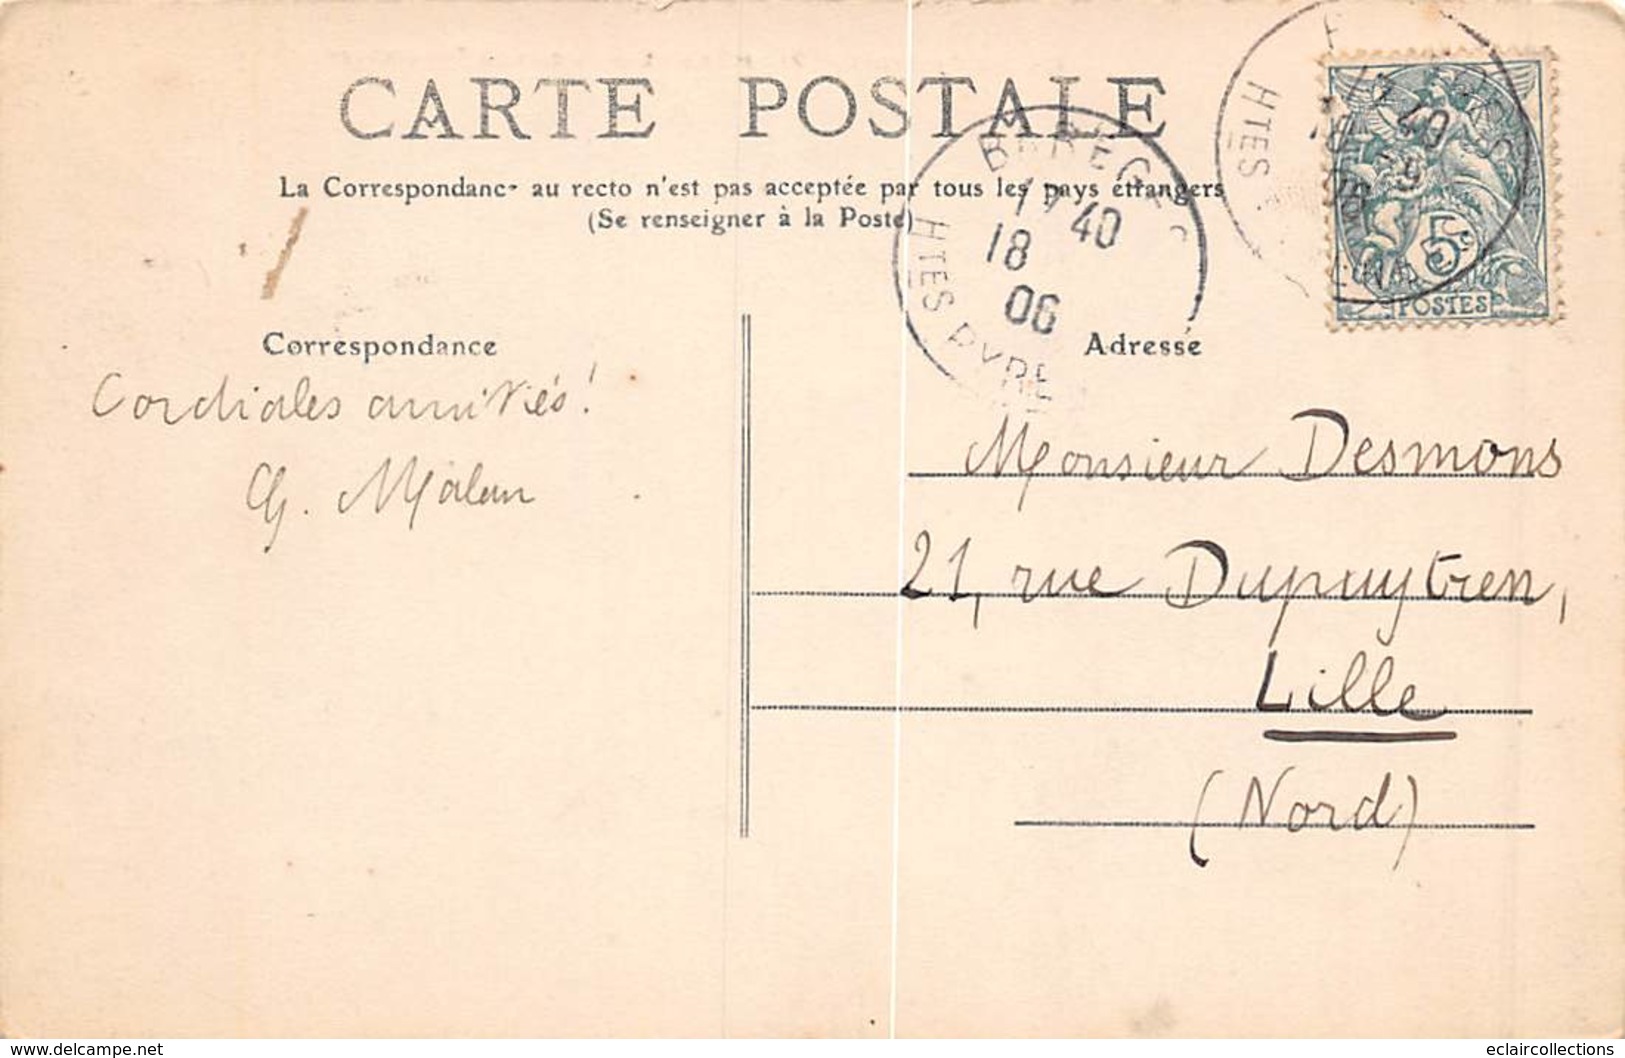 CARTE POSTALE
La Correspondanc- au recto n'est pas acceptée par tous les pays étrangers
(Se renseigner à la Poste)
BARÈGES
17 40
18
06
HTES PYRE
HTES
40
5c
POSTES
Correspondance
Adresse
Cordiales amitiés!
Ch. Malan
Monsieur Desmons
21, rue Dupuytren,
Lille
(Nord)
www.delcampe.net
eclaircollections